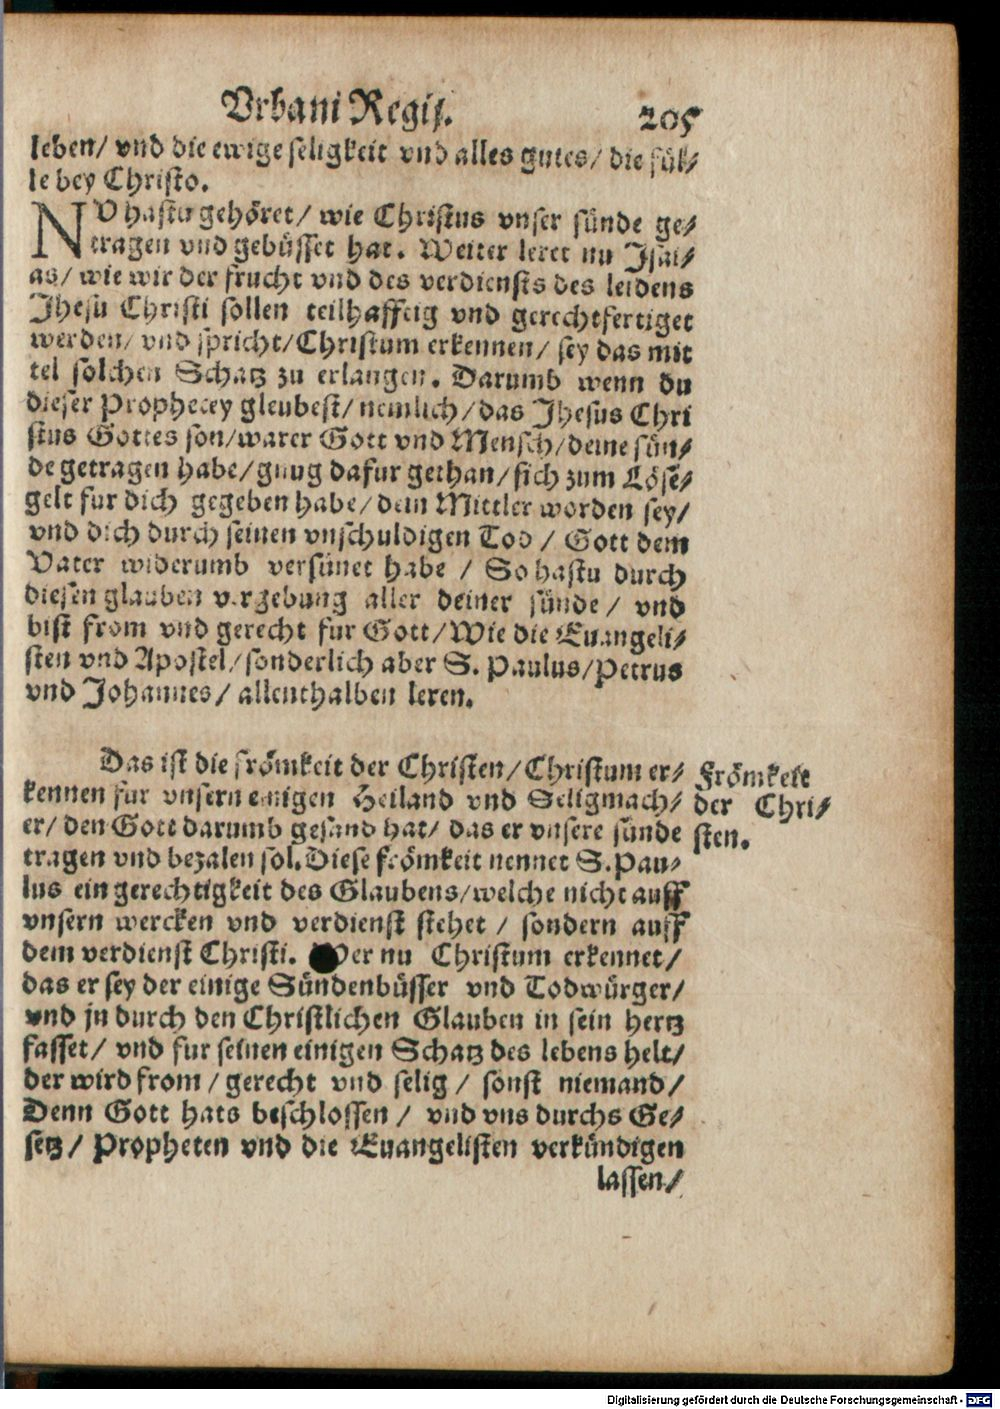 Vrbani Regij.
205
leben/ vnd die ewige seligkeit vnd alles gutes/ die fül⸗
le bey Christo.
NV hastu gehöret/ wie Christus vnser sünde ge⸗
tragen vnd gebüsset hat. Weiter leret nu Jsai⸗
as/ wie wir der frucht vnd des verdiensts des leidens
Jhesu Christi sollen teilhafftig vnd gerechtfertiget
werden/ vnd spricht/ Christum erkennen/ sey das mit
tel solchen Schatz zu erlangen. Darumb wenn du
dieser Prophecey gleubest/ nemlich/ das Jhesus Chri
stus Gottes son/ warer Gott vnd Mensch/ deine sün⸗
de getragen habe/ gnug dafur gethan/ sich zum Löse⸗
gelt fur dich gegeben habe/ dein Mittler worden sey/
vnd dich durch seinen vnschuldigen Tod / Gott dem
Vater widerumb versünet habe / So hastu durch
diesen glauben vergebung aller deiner sünde / vnd
bist from vnd gerecht fur Gott/ Wie die Euangeli⸗
sten vnd Apostel/ sonderlich aber S. Paulus/ Petrus
vnd Johannes/ allenthalben leren.
Das ist die frömkeit der Christen/ Christum er⸗
kennen fur vnsern einigen Heiland vnd Seligmach⸗
er/ den Gott darumb gesand hat/ das er vnsere sünde
tragen vnd bezalen sol. Diese frömkeit nennet S. Pau⸗
lus ein gerechtigkeit des Glaubens/ welche nicht auff
vnsern wercken vnd verdienst stehet / sondern auff
dem verdienst Christi. Wer nu Christum erkennet/
das er sey der einige Sündenbüsser vnd Todwürger/
vnd jn durch den Christlichen Glauben in sein hertz
fasset/ vnd fur seinen einigen Schatz des lebens helt/
der wird from / gerecht vnd selig / sonst niemand/
Denn Gott hats beschlossen / vnd vns durchs Ge⸗
setz / Propheten vnd die Euangelisten verkündigen
lassen/
Frömkeit
der Chri⸗
sten.
Digitalisierung gefördert durch die Deutsche Forschungsgemeinschaft - DFG